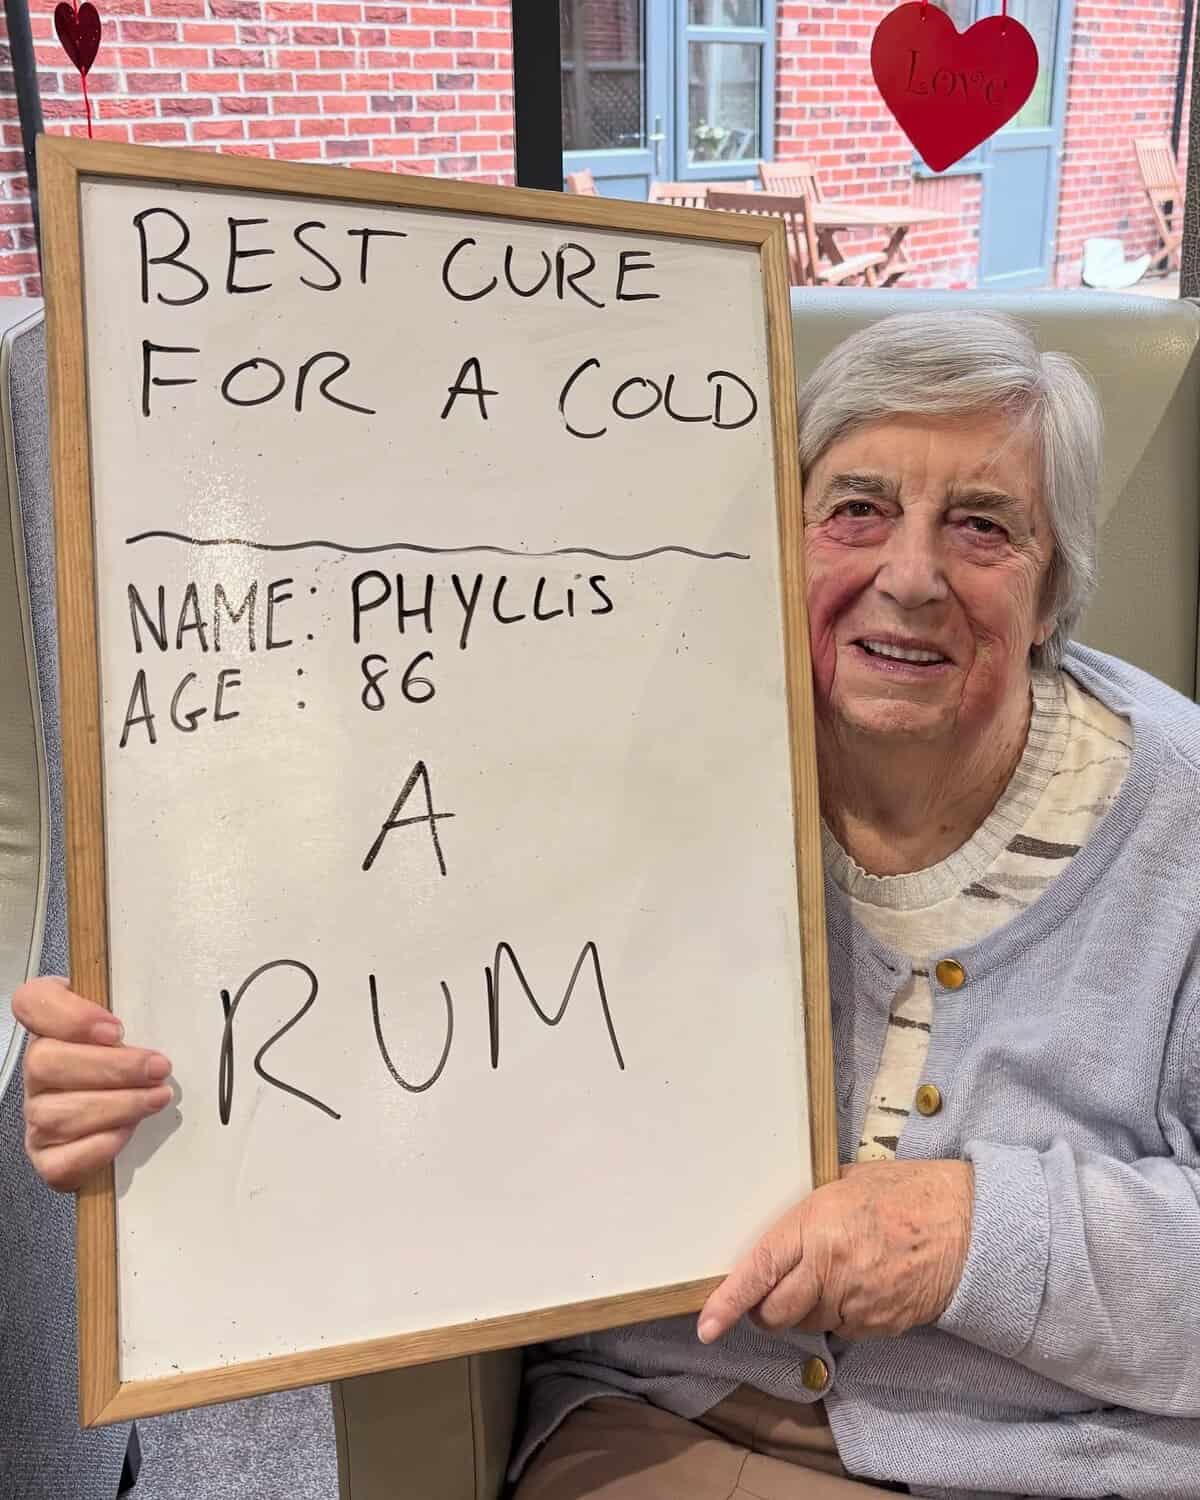 Love
BEST CURE
FOR A COLD
NAME: PHYLLiS
AGE : 86
A
RUM